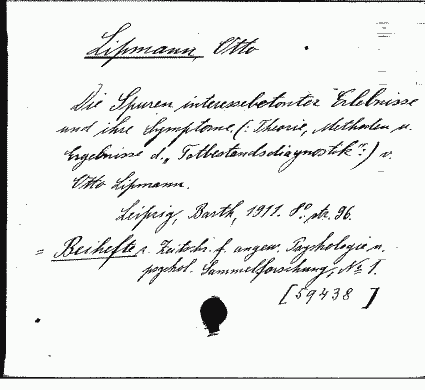 Lipmann, Otto
Die Spuren interessebetonter Erlebnisse
und ihre Symptome (: Theorie, Methoden u.
Ergebnisse d. „Tatbestandsdiagnostik“:) v.
Otto Lipmann.
Leipzig, Barth, 1911. 8° str. 96.
= Beihefte z. Zeitschr. f. angew. Psychologie u.
psychol. Sammelforschung, № 1.
[59438]